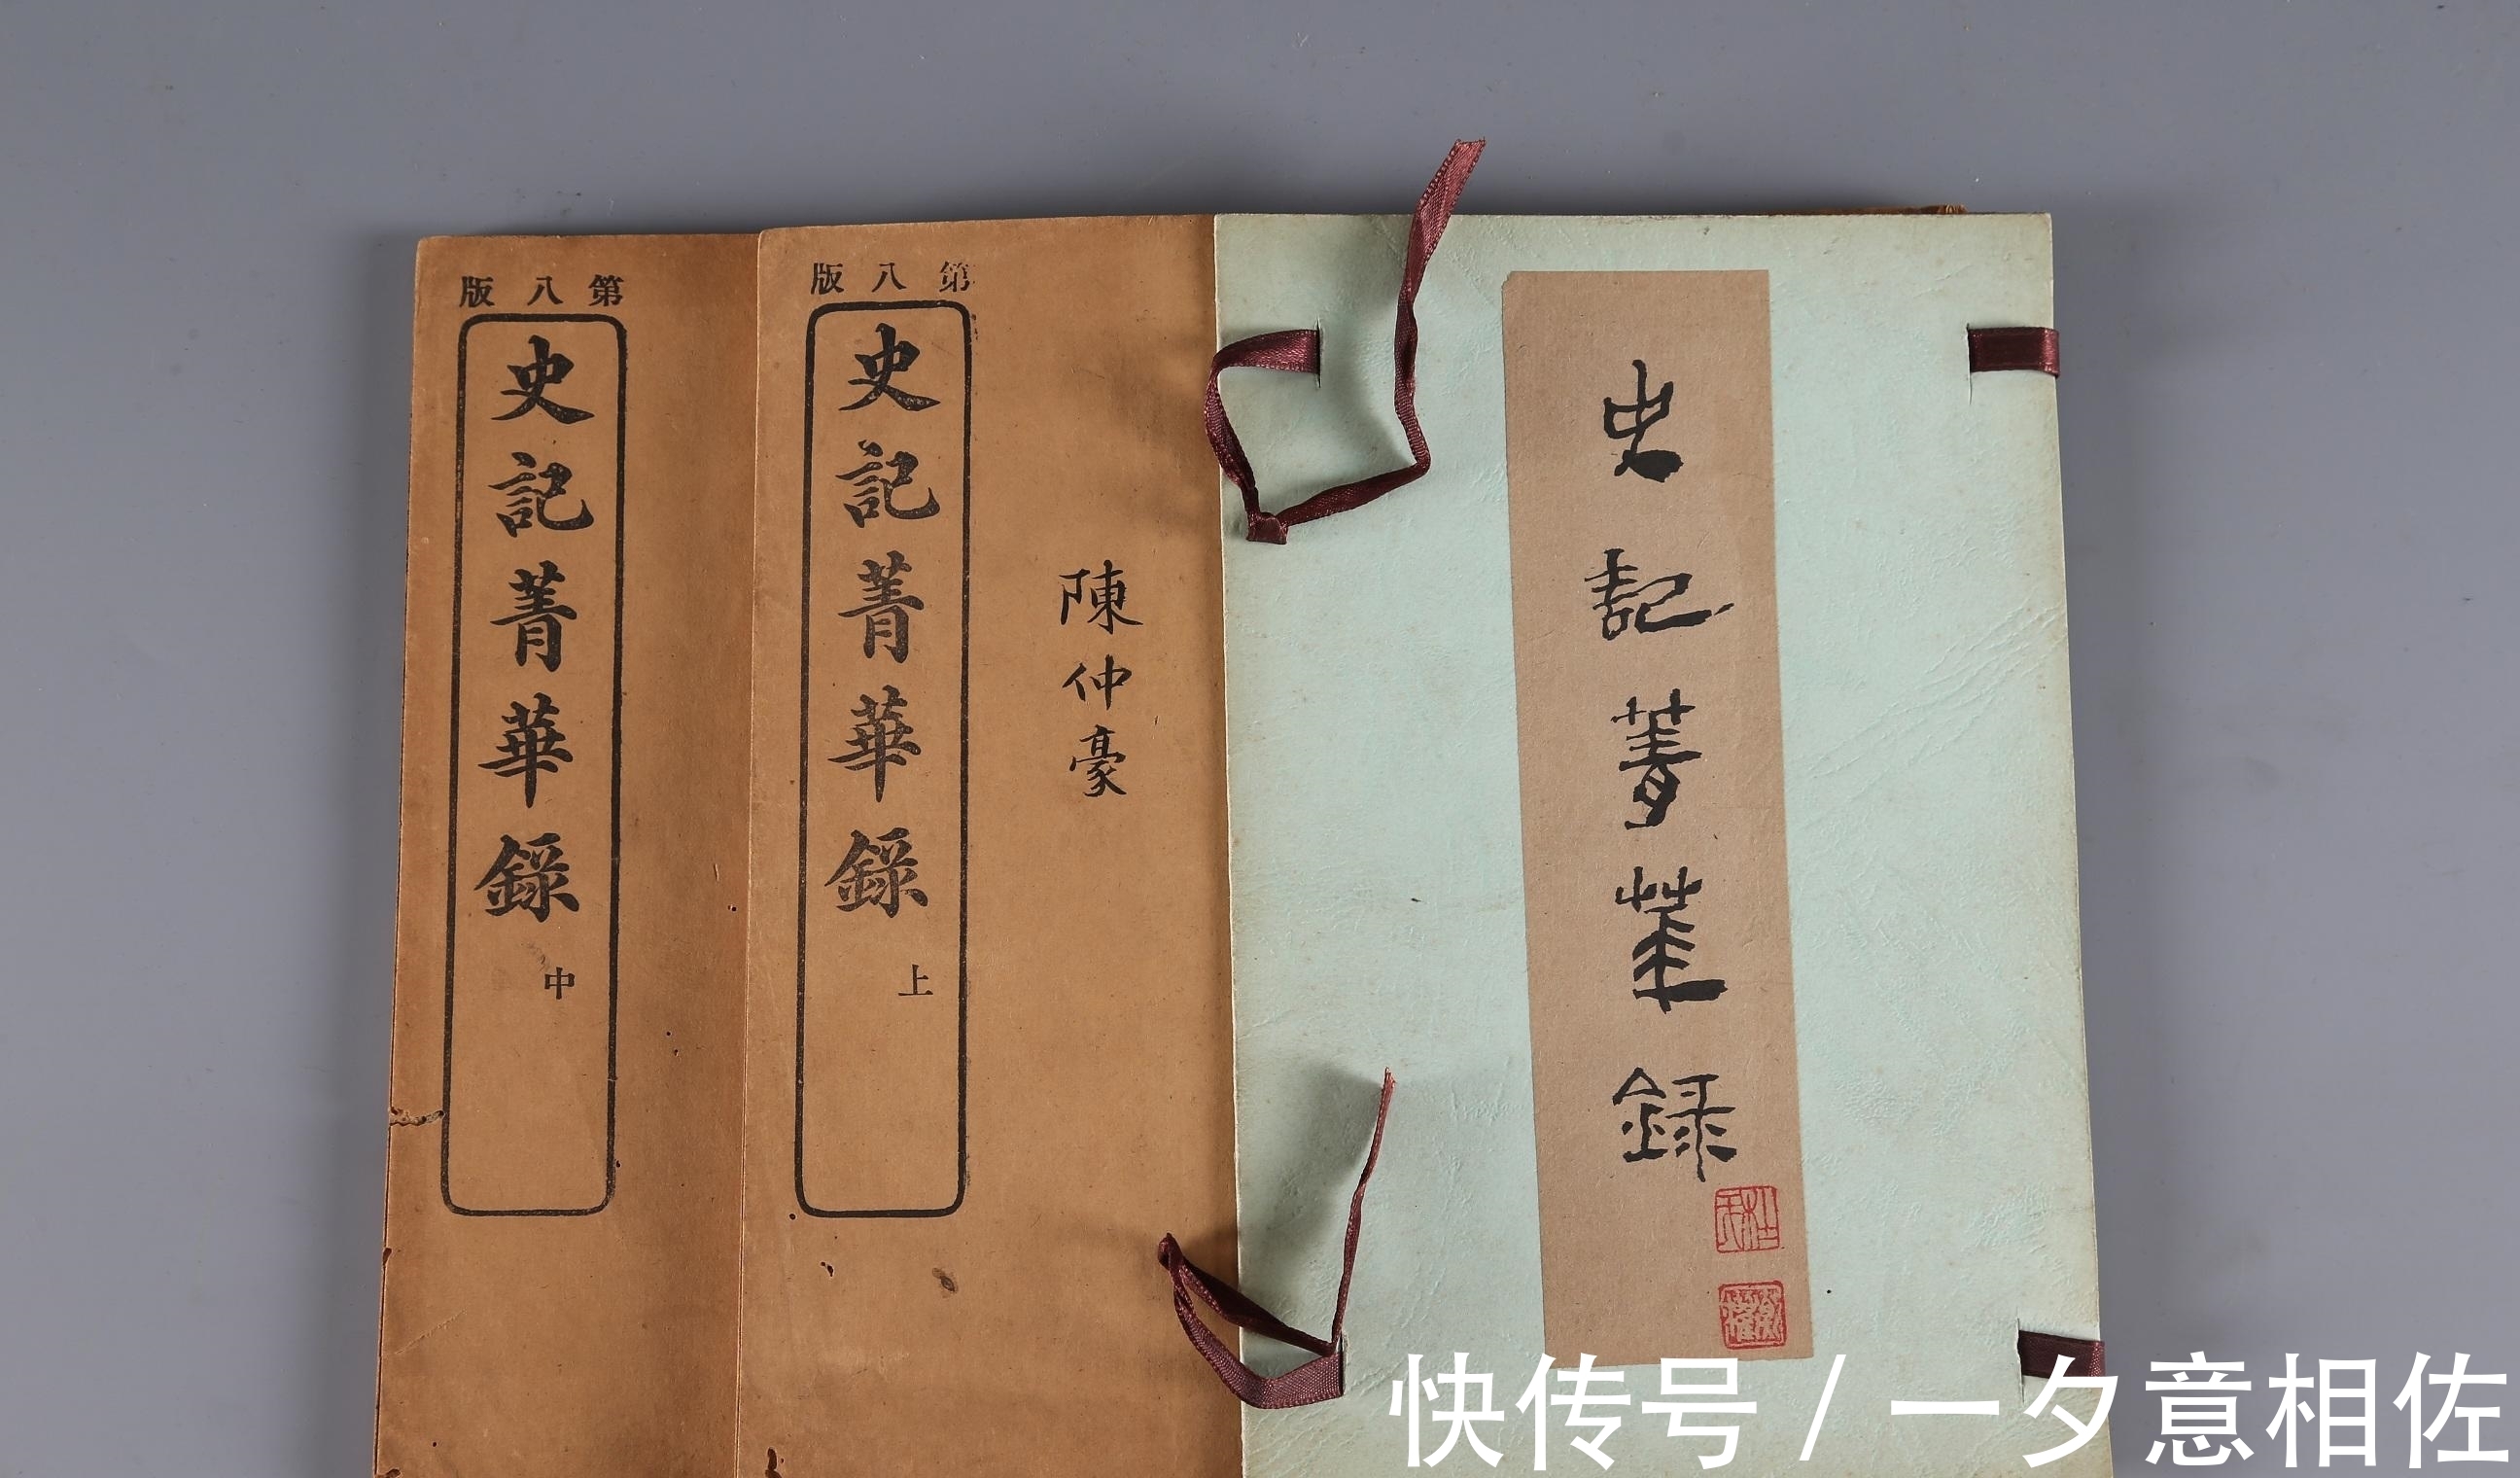 史記菁華録
陳仲豪
第八版
史記菁華錄
上
第八版
史記菁華錄
中
快传号/一夕意相佐